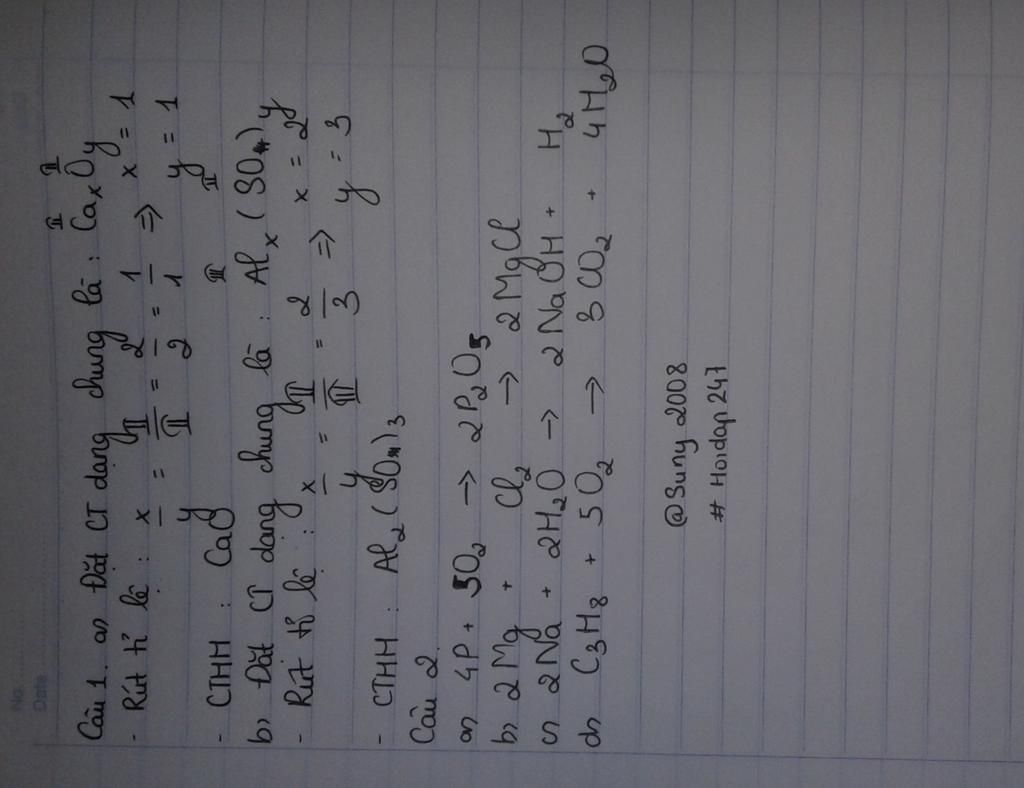 No.
Date
Câu 1. a) Đặt CT dạng chung là : CaxOy II II
- Rút tỉ lệ : x/y = II/II = 2/2 = 1/1 => x = 1 y = 1
- CTHH : CaO
b) Đặt CT dạng chung là : Alx(SO4)y III II
- Rút tỉ lệ : x/y = II/III = 2/3 => x = 2 y = 3
- CTHH : Al2(SO4)3
Câu 2.
a) 4P + 5O2 -> 2P2O5
b) 2Mg + Cl2 -> 2MgCl
c) 2Na + 2H2O -> 2NaOH + H2
d) C3H8 + 5O2 -> 3CO2 + 4H2O
@Suny 2008
# Hoidap247